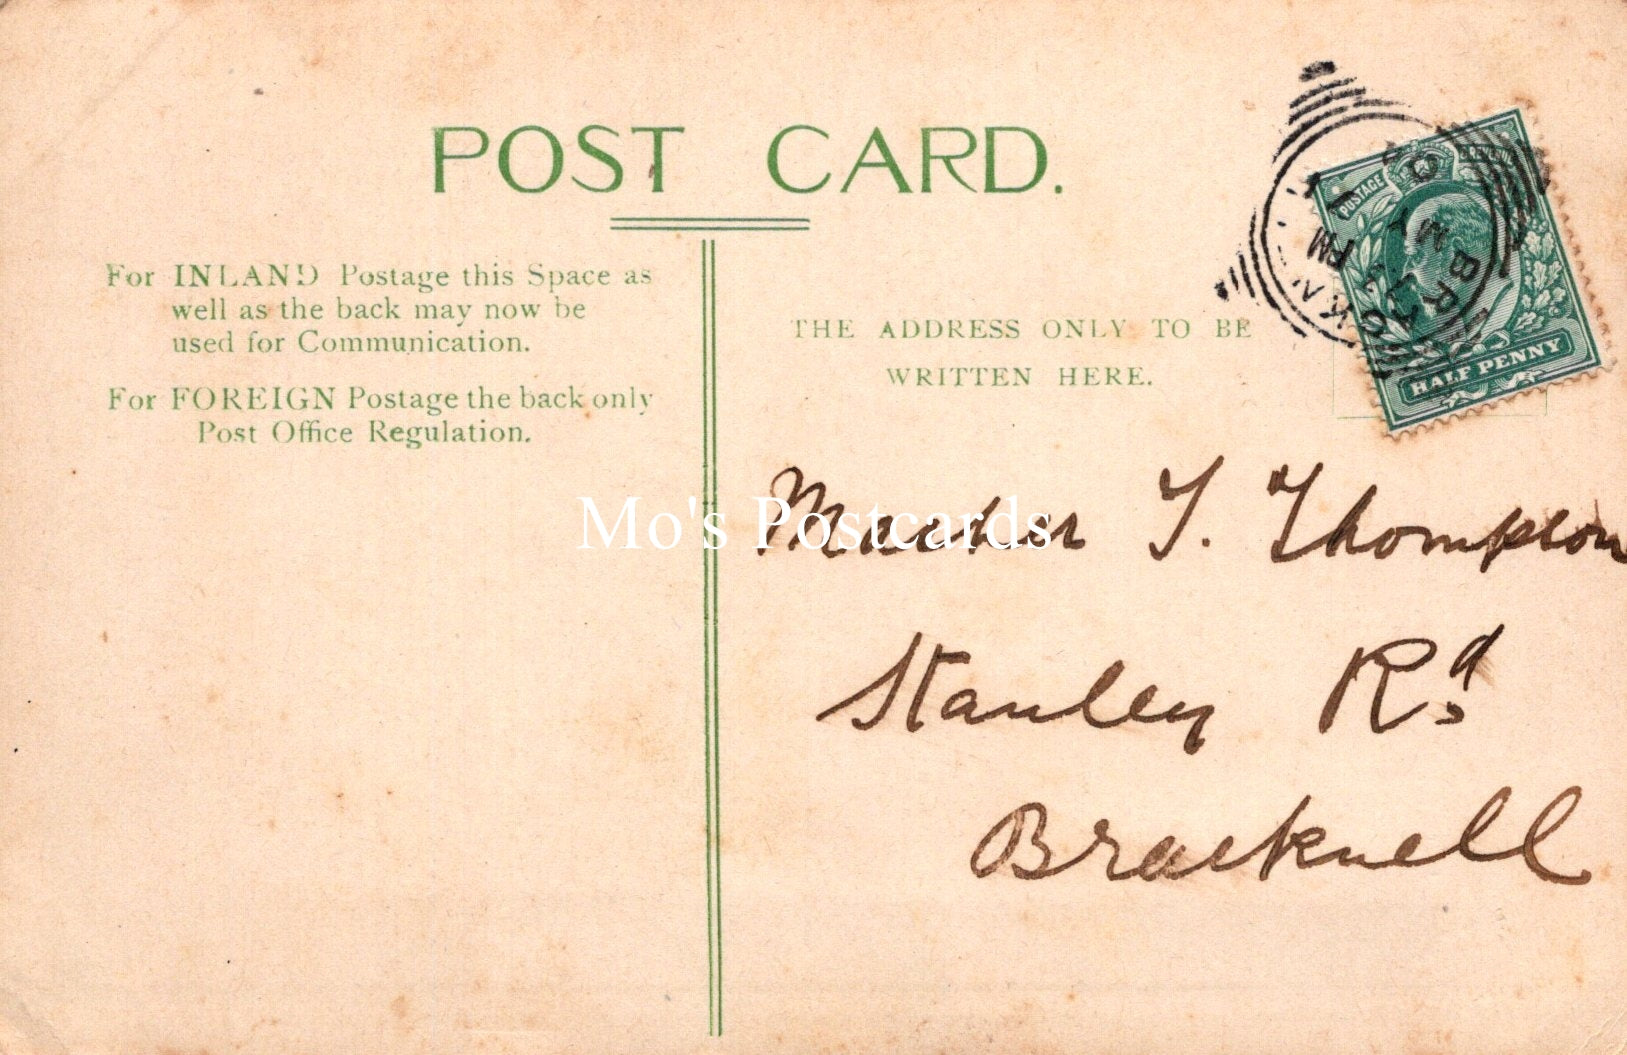 POST CARD.
For INLAND Postage this Space as
well as the back may now be
used for Communication.
For FOREIGN Postage the back only
Post Office Regulation.
THE ADDRESS ONLY TO BE
WRITTEN HERE.
POSTAGE
HALF PENNY
PM
Mo's Postcards
T. Thompson
Stanley Rd
Bracknell